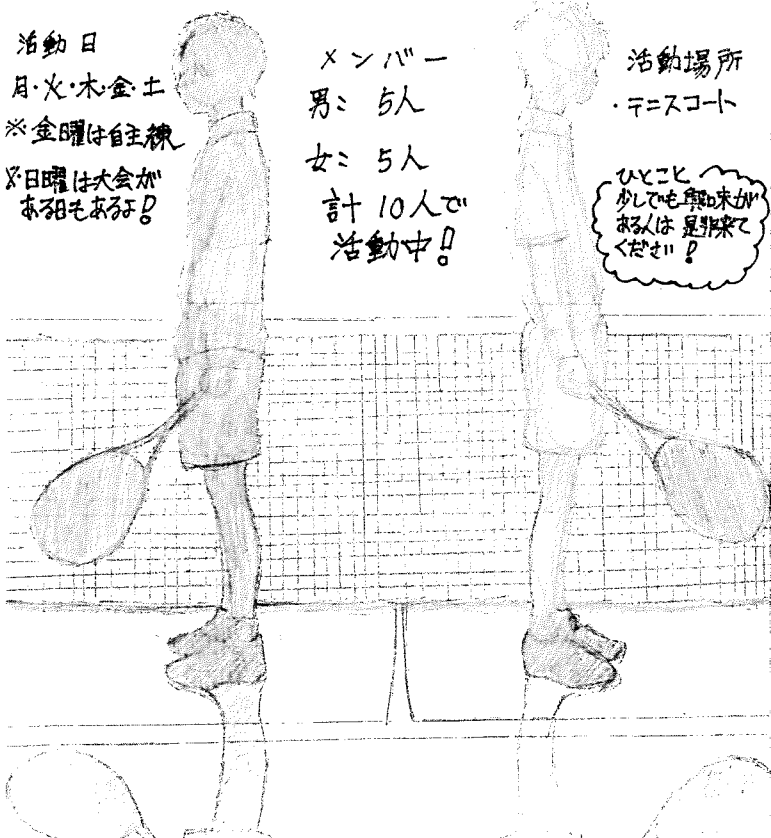 活動日
月・火・木・金・土
※金曜は自主練
※日曜は大会が
ある日もあるよ!
メンバー
男: 5人
女: 5人
計 10人で
活動中!
活動場所
・テニスコート
ひとこと
少しでも興味が
ある人は是非来て
ください!